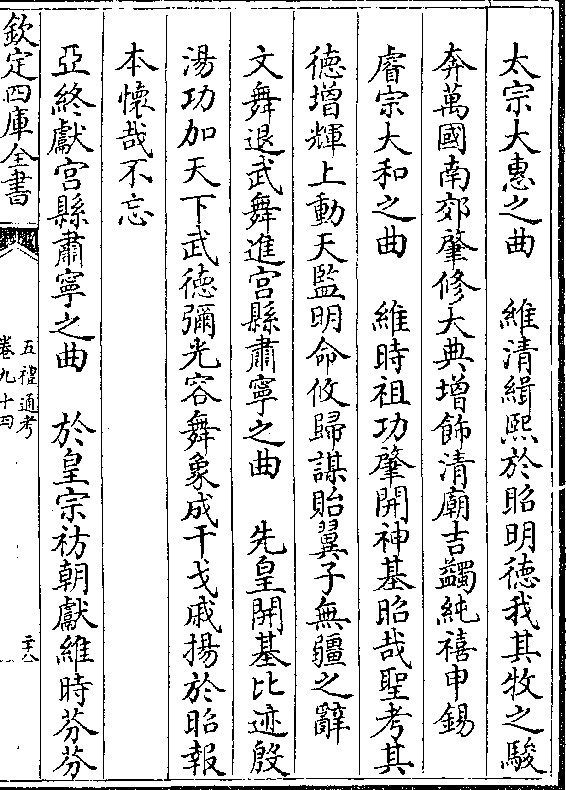 太宗大惠之曲　維清緝熙於昭明德我其收之駿
奔萬國南郊肇修大典增飾清廟吉蠲純禧申錫
睿宗大和之曲　維時祖功肇開神基昭哉聖考其
德增輝上動天監明命攸歸謀貽翼子無疆之辭
文舞退武舞進宮縣肅寧之曲　先皇開基比迹殷
湯功加天下武德彌光容舞象成干戈戚揚於昭報
本懷哉不忘
亞終獻宮縣肅寧之曲　於皇宗祊朝獻維時芬芬
欽定四庫全書
五禮通考
卷九十四
二十八